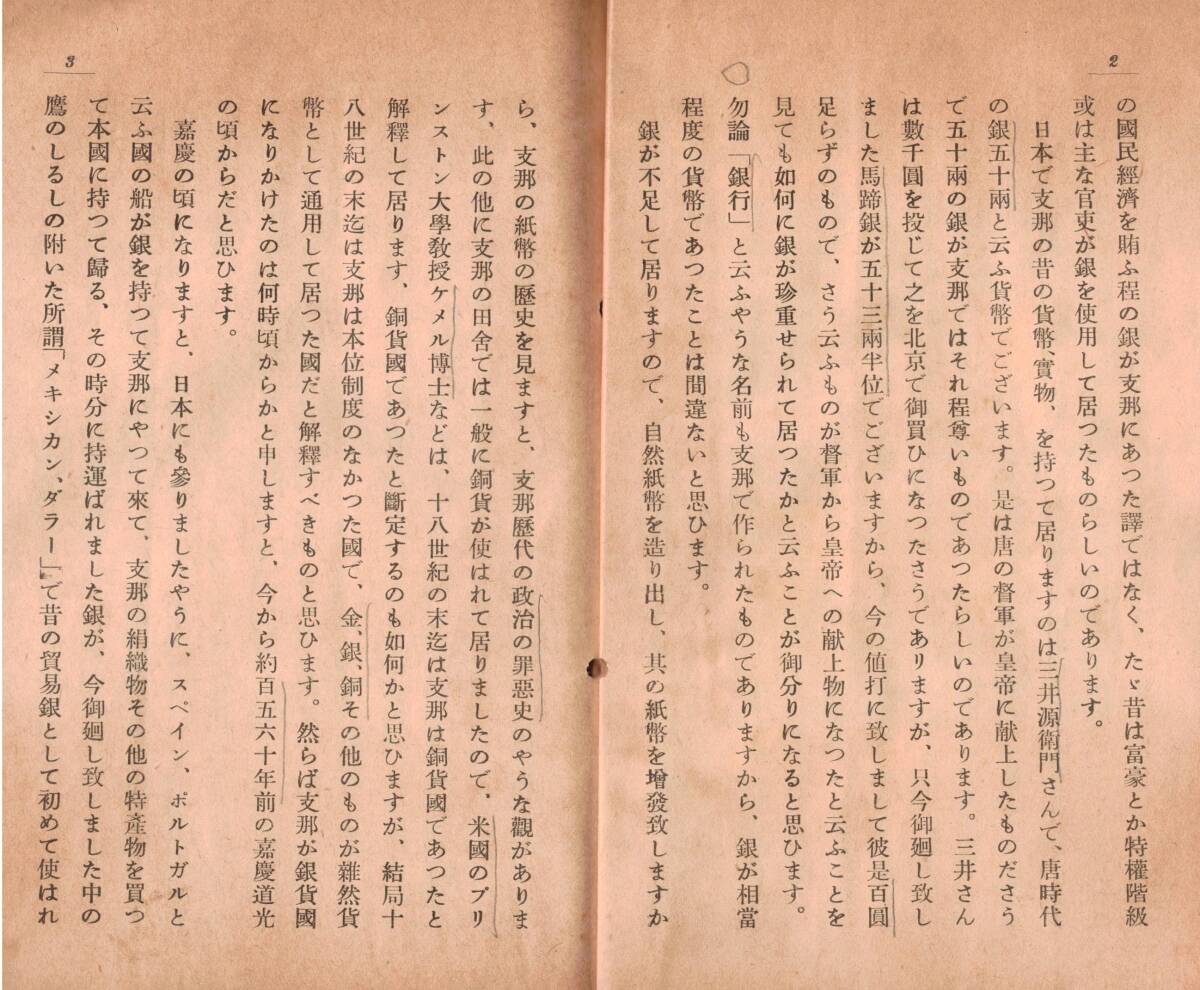 2
の國民經濟を賄ふ程の銀が支那にあつた譯ではなく、たゞ昔は富豪とか特權階級
或は主な官吏が銀を使用して居つたものらしいのであります。
日本で支那の昔の貨幣、實物、を持つて居りますのは三井源衛門さんで、唐時代
の銀五十兩と云ふ貨幣でございます。是は唐の督軍が皇帝に献上したものださう
で五十兩の銀が支那ではそれ程尊いものであつたらしいのであります。三井さん
は數千圓を投じて之を北京で御買ひになつたさうでありますが、只今御廻し致し
ました馬蹄銀が五十三兩半位でございますから、今の値打に致しまして彼是百圓
足らずのもので、さう云ふものが督軍から皇帝への献上物になつたと云ふことを
見ても如何に銀が珍重せられて居つたかと云ふことが御分りになると思ひます。
勿論「銀行」と云ふやうな名前も支那で作られたものでありますから、銀が相當
程度の貨幣であつたことは間違ないと思ひます。
銀が不足して居りますので、自然紙幣を造り出し、其の紙幣を增發致しますか
3
ら、支那の紙幣の歷史を見ますと、支那歷代の政治の罪惡史のやうな觀がありま
す、此の他に支那の田舍では一般に銅貨が使はれて居りましたので、米國のプリ
ンストン大學敎授ケメル博士などは、十八世紀の末迄は支那は銅貨國であつたと
解釋して居ります、銅貨國であつたと斷定するのも如何かと思ひますが、結局十
八世紀の末迄は支那は本位制度のなかつた國で、金、銀、銅その他のものが雜然貨
幣として通用して居つた國だと解釋すべきものと思ひます。然らば支那が銀貨國
になりかけたのは何時頃からかと申しますと、今から約百五六十年前の嘉慶道光
の頃からだと思ひます。
嘉慶の頃になりますと、日本にも參りましたやうに、スペイン、ポルトガルと
云ふ國の船が銀を持つて支那にやつて來て、支那の絹織物その他の特產物を買つ
て本國に持つて歸る、その時分に持運ばれました銀が、今御廻し致しました中の
鷹のしるしの附いた所謂「メキシカン、ダラー」で昔の貿易銀として初めて使はれ